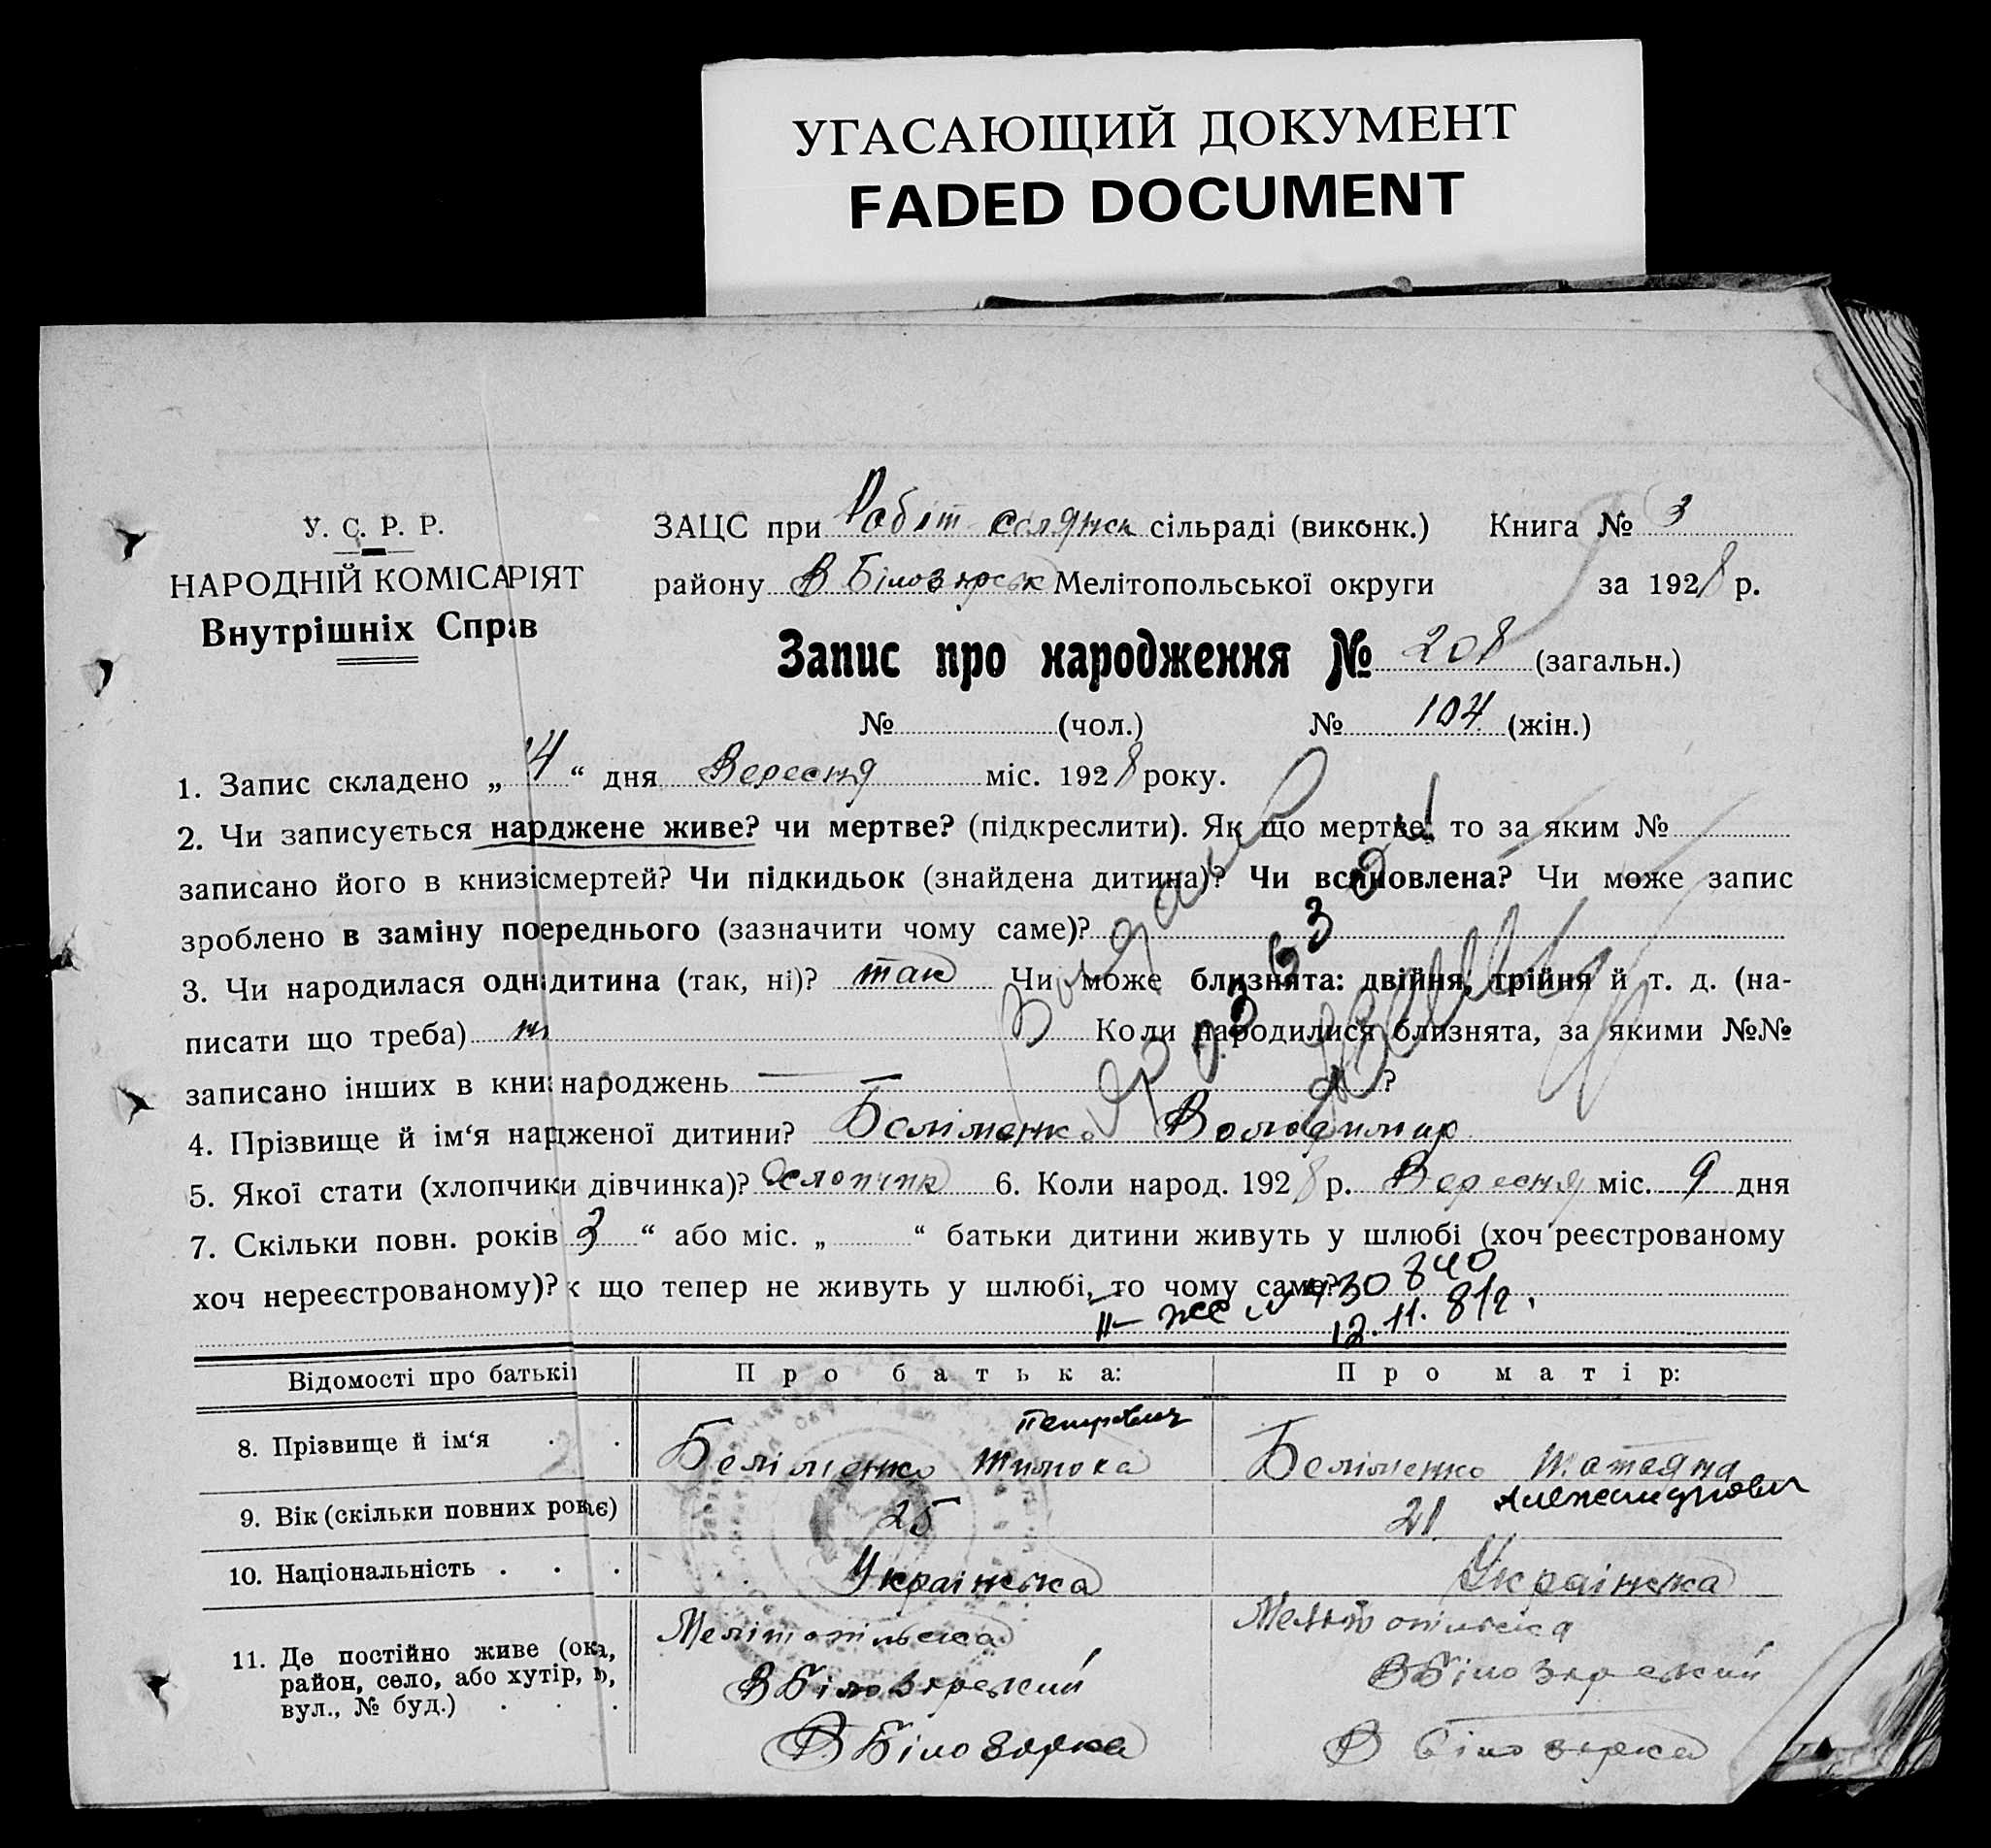 УГАСАЮЩИЙ ДОКУМЕНТ
FADED DOCUMENT
У. С. Р. Р.
НАРОДНІЙ КОМІСАРІЯТ
Внутрішніх Справ
ЗАЦС при Робіт селянск сільраді (виконк.) Книга № 3
району В Білозірськ Мелітопольської округи за 1928 р.
Запис про народження № 208 (загальн.)
№ (чол.) № 104 (жін.)
1. Запис складено „ 14 “ дня Вересня міс. 1928 року.
2. Чи записується нарджене живе? чи мертве? (підкреслити). Як що мертве, то за яким №
записано його в книзі смертей? Чи підкидьок (знайдена дитина)? Чи всиновлена? Чи може запис
зроблено в заміну поереднього (зазначити чому саме)?
3. Чи народилася одна дитина (так, ні)? так Чи може близнята: двійня, трійня й т. д. (на-
писати що треба) Коли народилися близнята, за якими №№
записано інших в книзі народжень — — ?
4. Прізвище й ім‘я нардженої дитини? Беліменко Володимир
5. Якої стати (хлопчик и дівчинка)? Хлопчик 6. Коли народ. 1928 р. Вересня міс. 9 дня
7. Скільки повн. років 3 “ або міс. „ “ батьки дитини живуть у шлюбі (хоч реєстрованому
хоч нереєстрованому)? к що тепер не живуть у шлюбі, то чому саме?
II - же № 430840
12.11.81г.
Відомості про батьків Про батька: Про матір:
Петрович
8. Прізвище й ім‘я Беліменко Тимоха Беліменко Татеяна
9. Вік (скільки повних років має) 25 21
10. Національність Українська Українка
11. Де постійно живе (окр., Мелітопільська Мелітопільська
район, село, або хутір, В Білозірський В Білозірський
вул., № буд.) В Білозірка В Білозірка